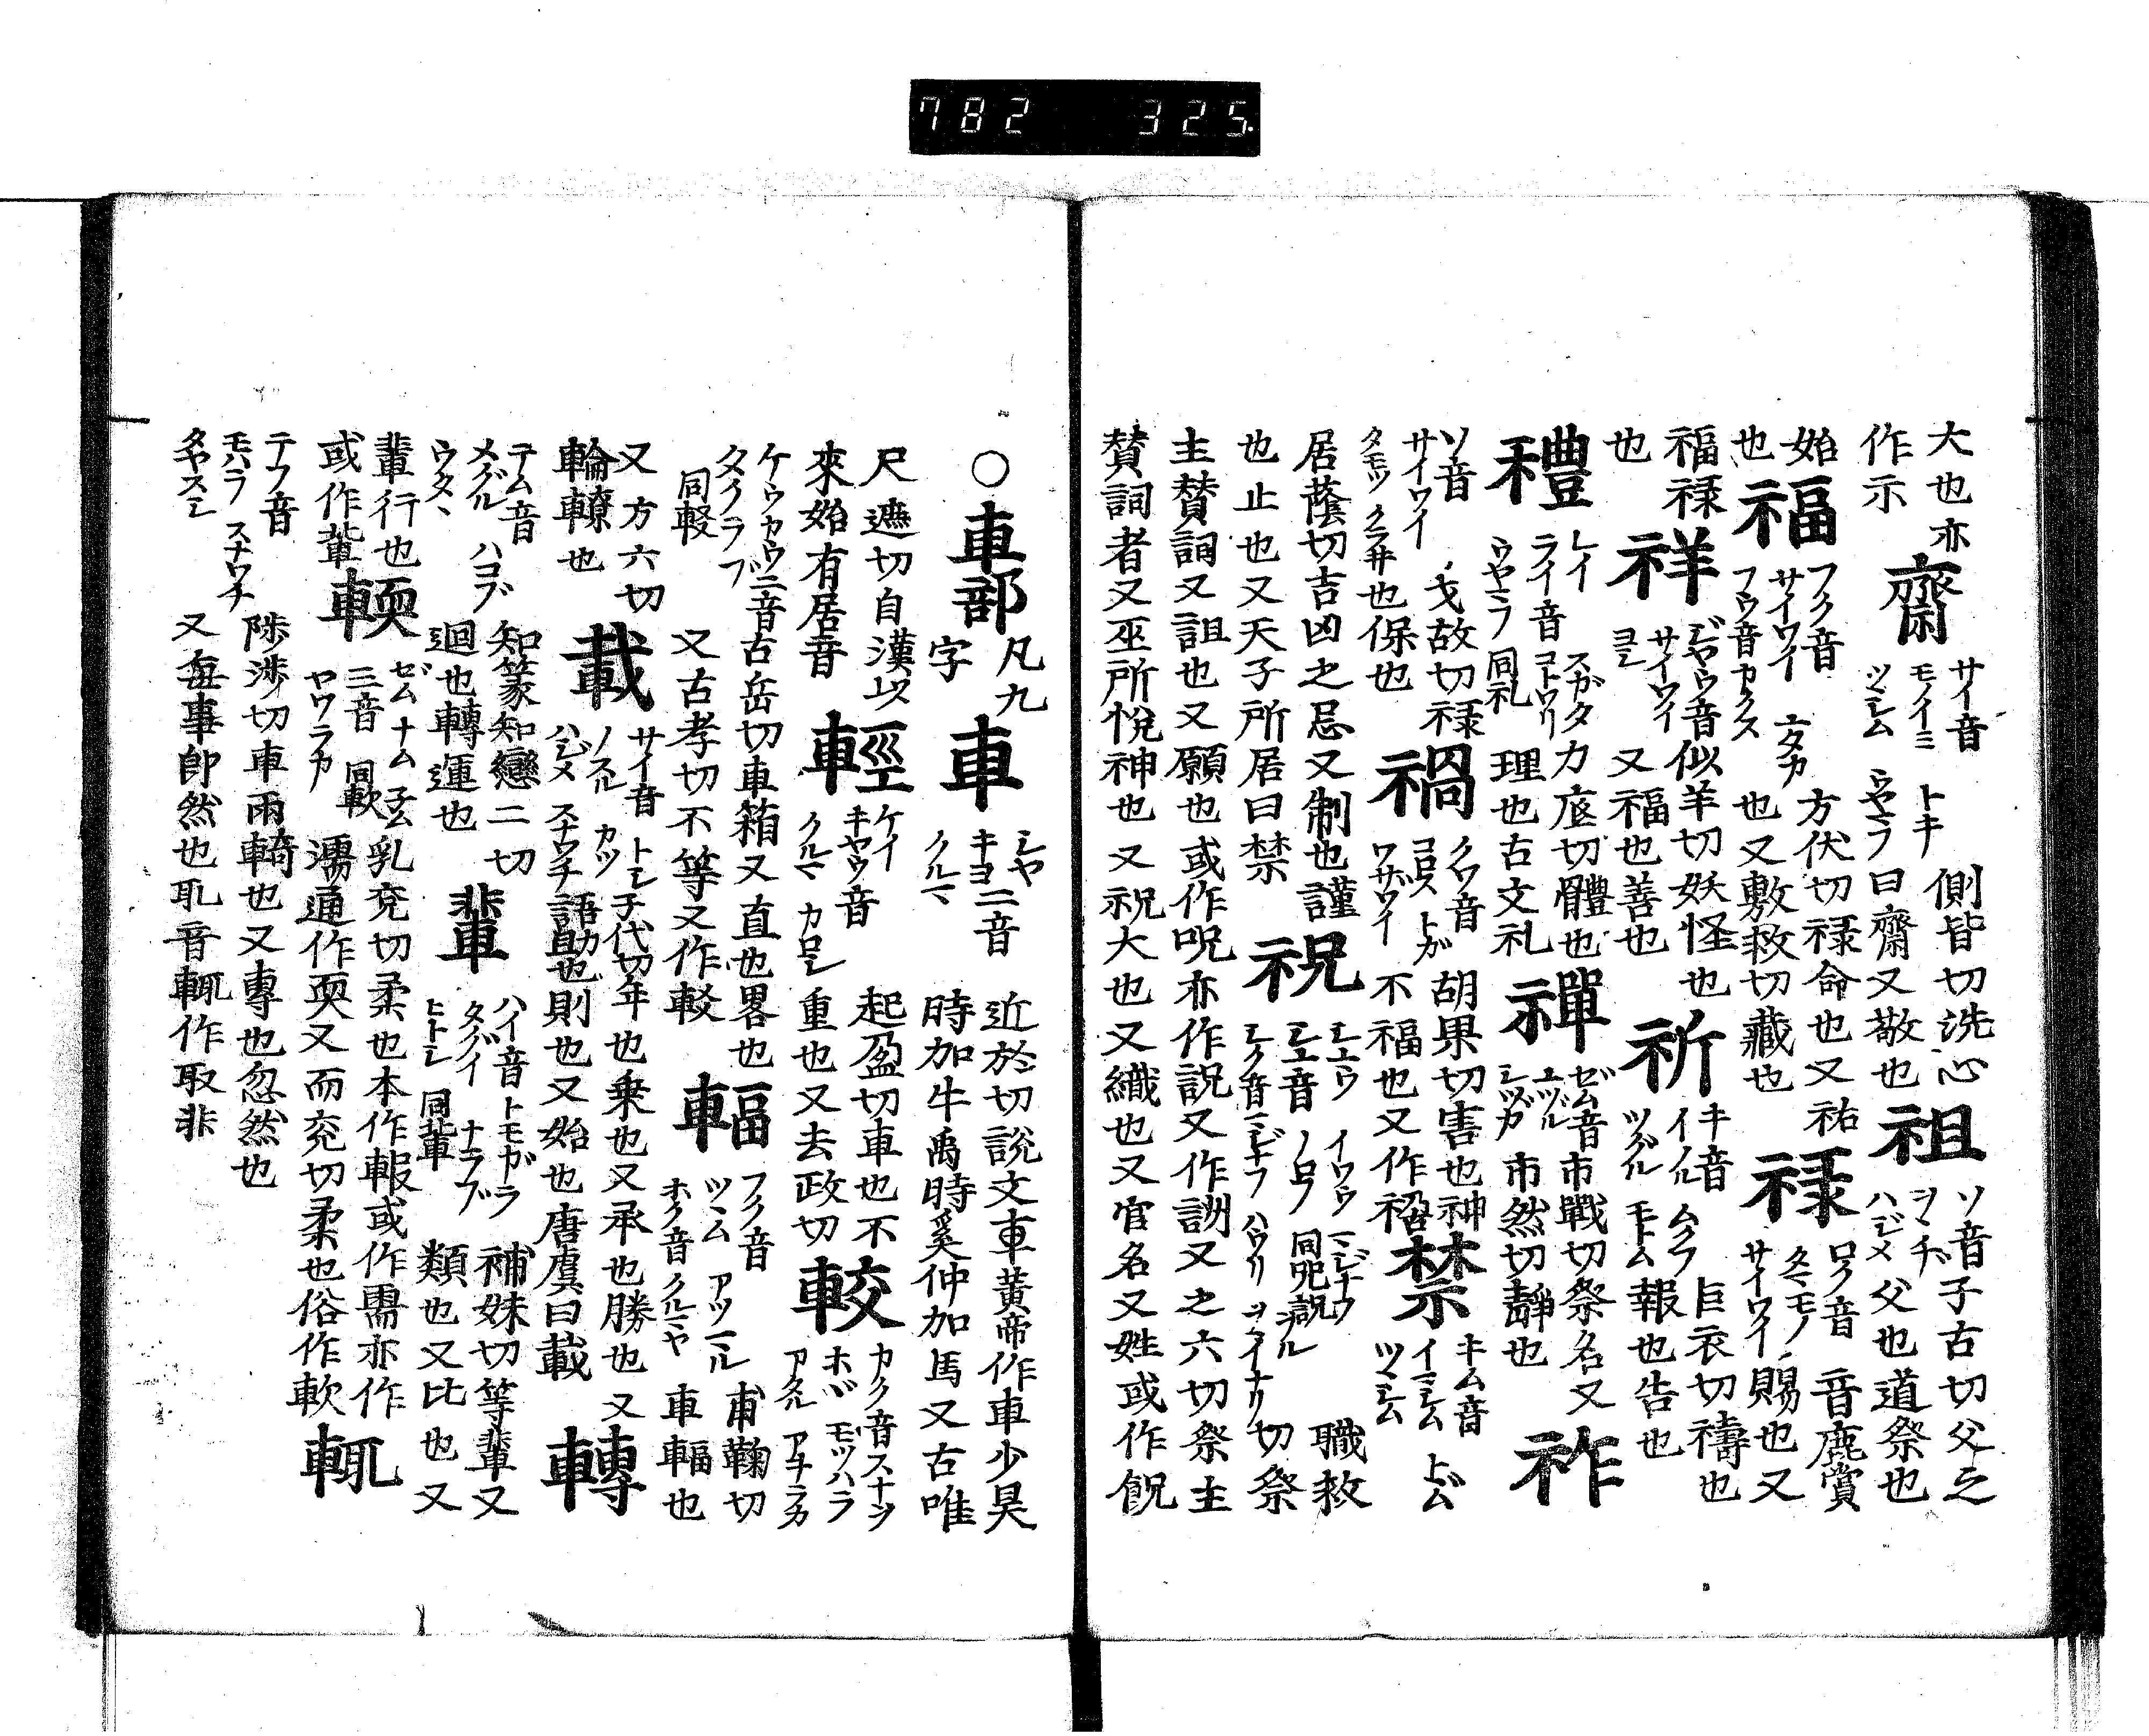 782 325.
大也亦
作示
齋
サイ音 トキ
モノイミ
ツヽシム ウヤマフ
側皆切洗心
曰齋又敬也
祖
ソ音
ヲヽヂ
ハジメ
子古切父之
父也道祭也
始
也
福
フク音
サイワイ ユタカ
フウ音カクス
方伏切禄命也又祐
也又敷救切藏也
禄
ロク音
タマモノ
サイワイ
音鹿賞
賜也又
福禄
也
祥
ジヤウ音
サイワイ
ヨシ
似羊切妖怪也
又福也善也
祈
キ音
イノル ムクフ
ツグル モトム
巨衣切禱也
報也告也
禮
レイ
ライ音 スガタ
コトワリ
ウヤマフ 同礼
力底切體也
理也古文礼
禪
ゼム音
ユヅル
シヅカ
市戰切祭名又
市然切靜也
祚
ソ音
サイワイ
タモツ クラヰ
才故切禄
也保也
禍
クワ音
コロス トガ
ワザワイ
胡果切害也神
不福也又作𥚁
禁
キム音
イマシム トヾム
ツヽシム
居蔭切吉凶之忌又制也謹
也止也又天子所居曰禁
祝
シユウ イワウ マジナウ
シユ音 ノロフ 同呪説
シク音マジナフ ハウリ
職救
切祭
主賛詞又詛也又願也或作呪亦作説又作詶又之六切祭主
賛詞者又巫所悅神也又祝大也又織也又官名又姓或作䬕
○車部 凡九
字
車
シヤ
キヨ二音
クルマ
近於切説文車黄帝作車少昊
時加牛禹時奚仲加馬又古唯
尺遮切自漢以
來始有居音
輕
ケイ
キヤウ音
クルマ カロシ
起盈切車也不
重也又去政切
較
カク音スナヲ
ホヾ モツハラ
アタル アキラカ
ケウカウ二音
タクラブ
同䡈
古岳切車箱又直也畧也
又古孝切不等又作䡈
輻
フク音
ツヽム アツマル
ホク音クルマヤ
甫鞠切
車輻也
又方六切
輪轑也
載
サイ音 トシ
ノスル カツ
ハジメ スナワチ
子代切年也乗也又承也勝也又
語助也則也又始也唐虞曰載
轉
テム音
メグル ハコブ
ウタヽ
知篆知戀二切
迴也轉運也
輩
ハイ音トモガラ
タグイ ナラブ
ヒトシ 同軰
補妹切等輩又
類也又比也又
輩行也
或作軰
輭
ゼム ナム 子ム
三音 同軟
ヤワラカ
乳兗切柔也本作報或作需亦作
濡通作耎又而兗切柔也俗作軟
輒
テフ音
モハラ スナワチ
タヤスシ
陟渉切車兩輢也又專也忽然也
又毎事卽然也耴音輒作取非